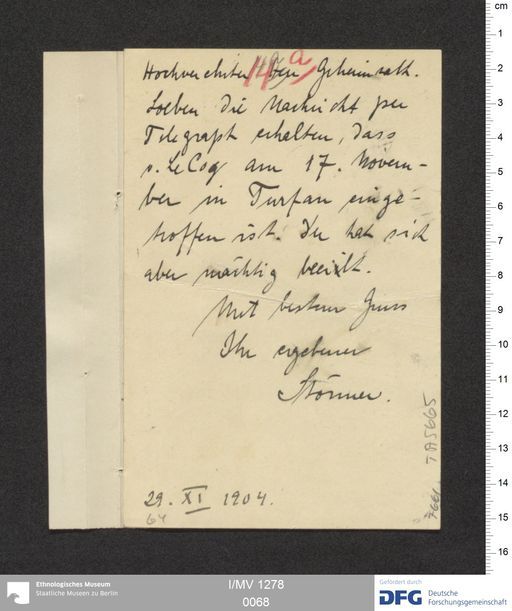 Hochverehrter Herr Geheimrath.
14 a
Soeben die Nachricht per
Telegraph erhalten, dass
v. LeCoq am 17. Novem-
ber in Turfan einge-
troffen ist. Der hat sich
aber mächtig beeilt.
Mit bestem Gruss
Ihr ergebener
Stönner.
29. XI 1904.
64
TA5665
cm
1
2
3
4
5
6
7
8
9
10
11
12
13
14
15
16
Ethnologisches Museum
Staatliche Museen zu Berlin
I/MV 1278
0068
Gefördert durch
DFG Deutsche
Forschungsgemeinschaft